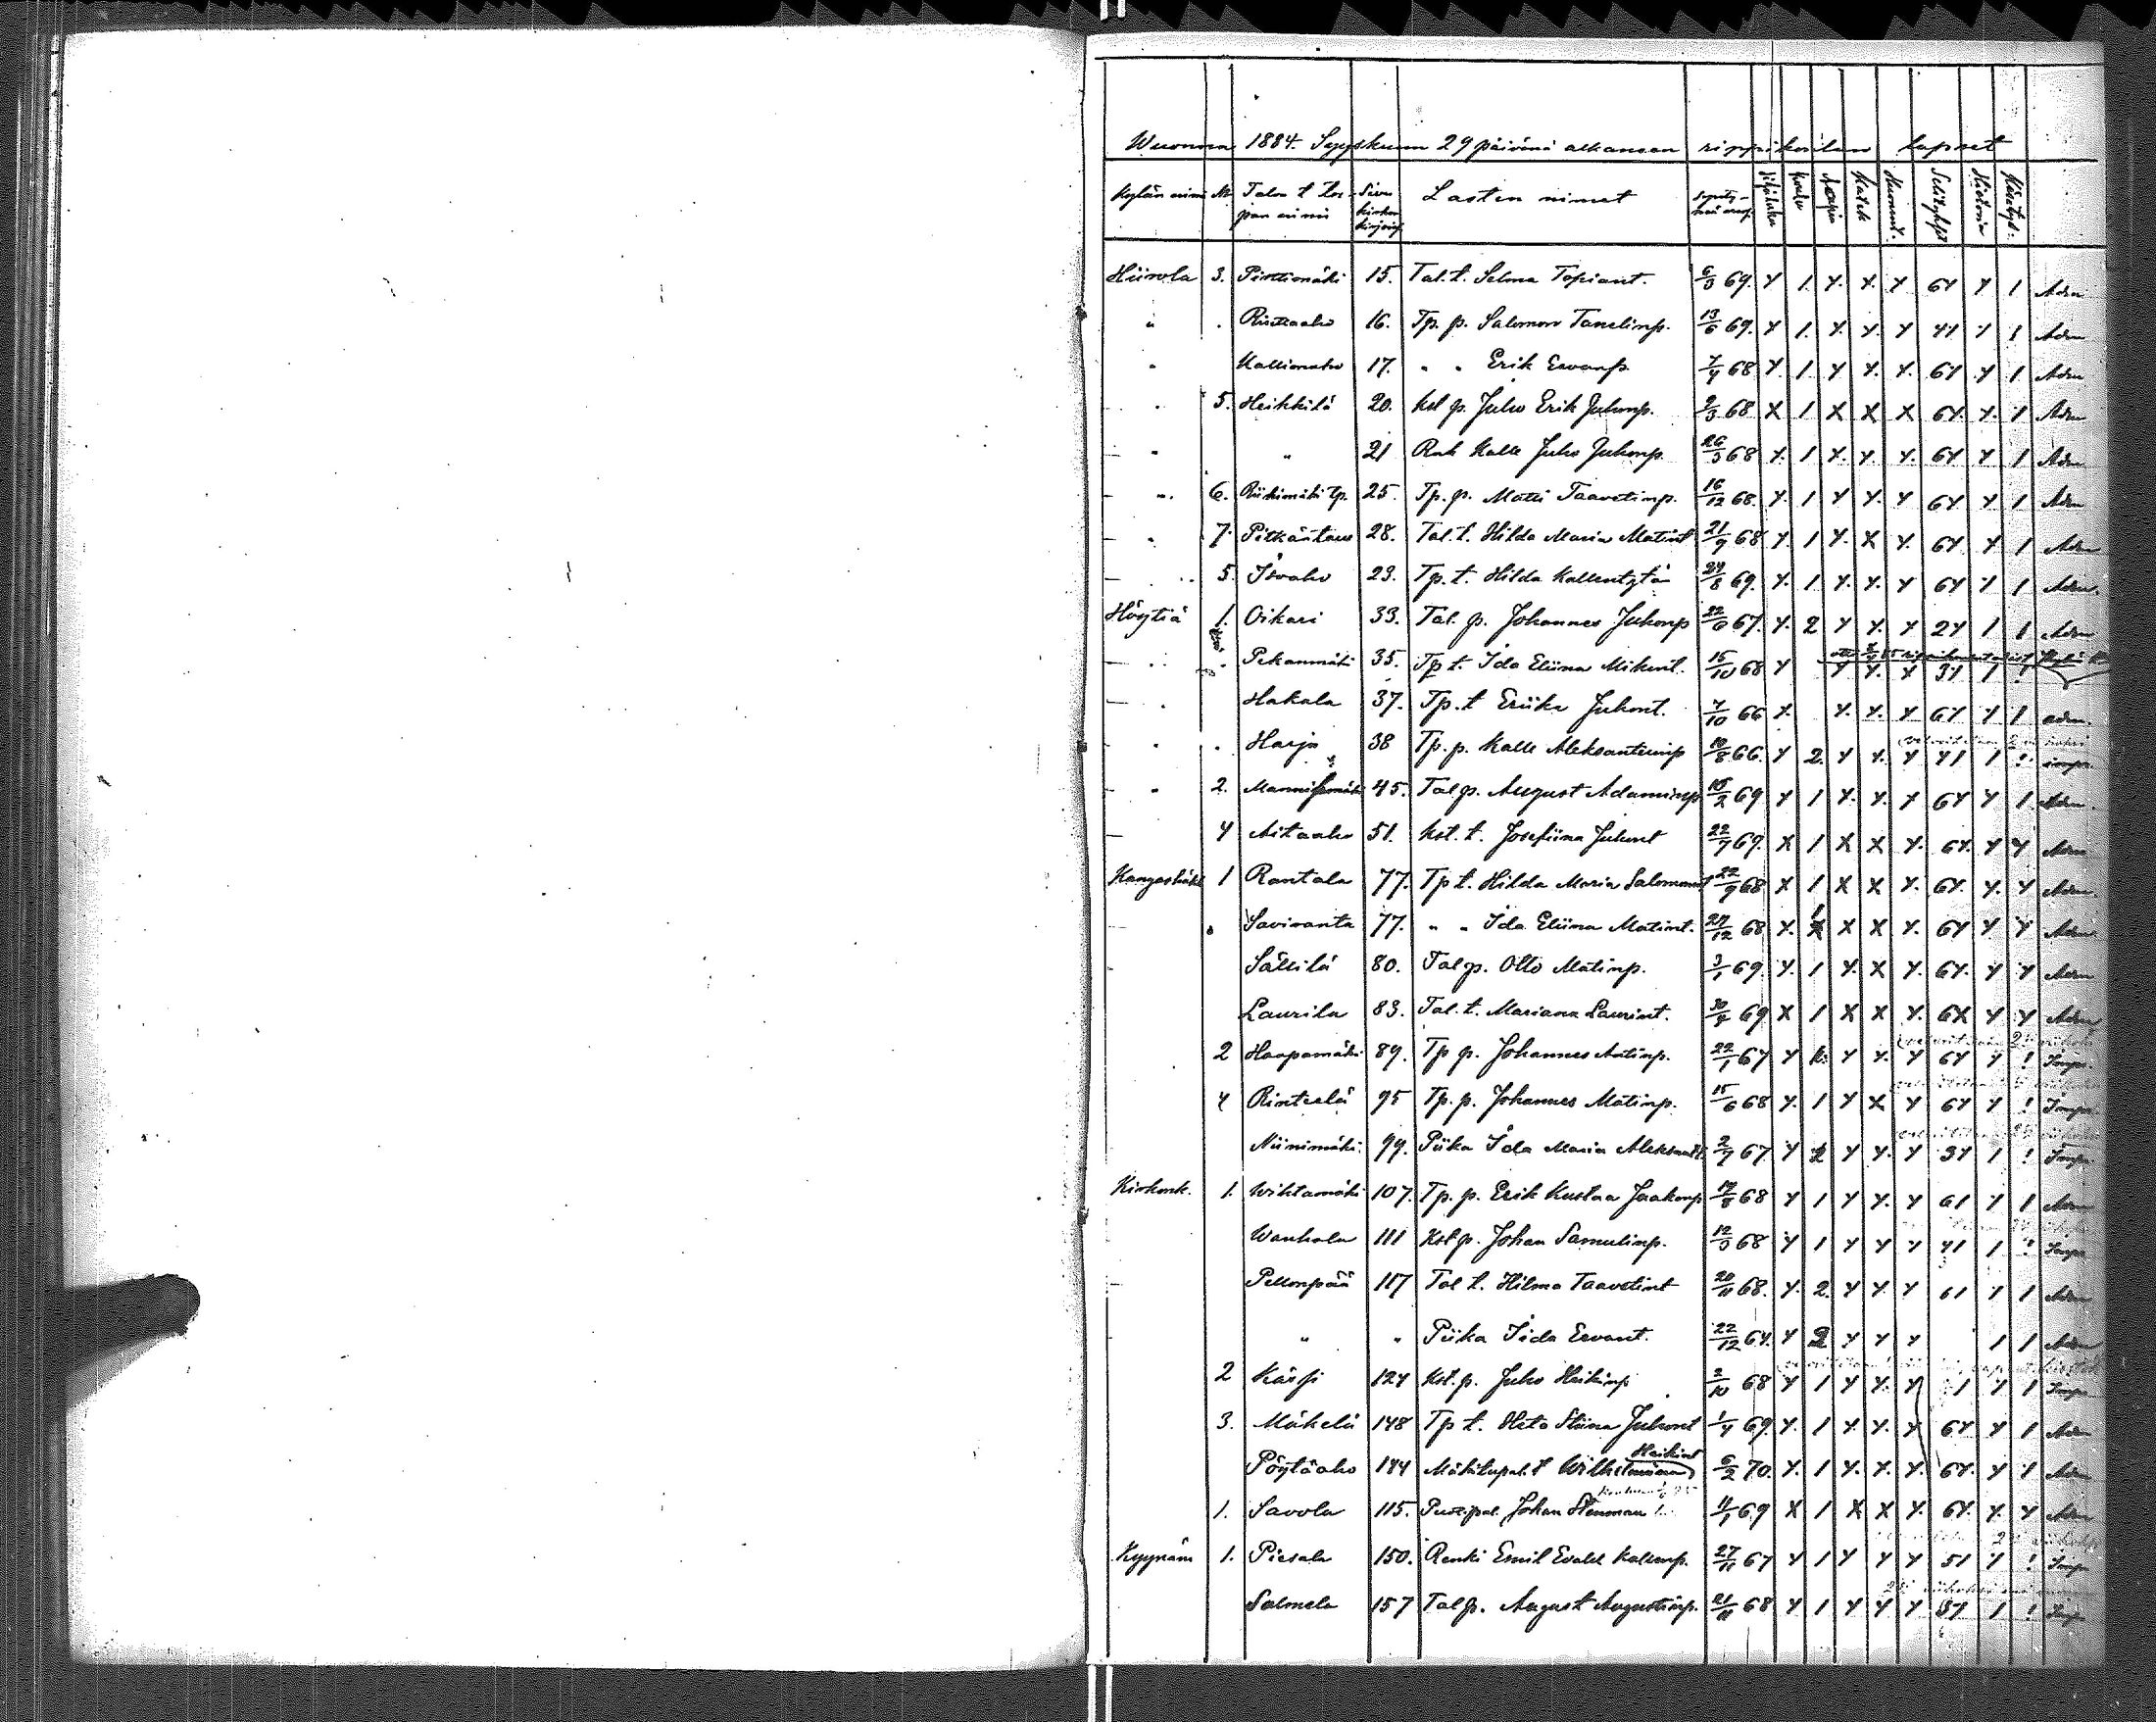 Wuonna 1884. Syyskuun 29 päivänä alkaneen rippikoulun lapset
Kylän nimi № Talon t. Tor-pan nimi Sivu kirkon kirjassa Lasten nimet synty-mä Sisäluku Koulu Katek Huomiot. Selitykset Historia Käsitys.
Hiirola 3. Pirttimäki 15. Tal. t. Selma Topiant. 6/3 69. Y 1. Y. Y. Y 6Y Y 1 Adm
" . Rinteaho 16. Tp. p. Salomon Tanelinp. 13/6 69. Y 1. Y. Y. Y 41 1 1 Adm
" Kallionaho 17. " " Erik Eevanp. 7/4 68 Y. 1 Y Y. Y. 6Y Y 1 Adm
" 5. Heikkilä 20. Kst p. Juho Erik Juhonp. 2/3 68 X 1 X X X 6Y. Y. 1 Adm
" " 21 Renk Kalle Juho Juhonp. 26/3 68 Y. 1 Y. Y. Y. 6Y Y 1 Adm
" 6. Riihimäki tp. 25. Tp. p. Matti Taavetinp. 16/12 68. Y. 1 Y Y. Y 6Y Y 1 Adm
" 7. Pitkäntaus 28. Tal. t. Hilda Maria Matint 21/9 68 Y. 1 Y. X Y. 6Y Y 1 Adm
" 5. Isoaho 23. Tp. t. Hilda Kallentytär 24/8 69. Y. 1 Y. Y. Y 6Y Y 1 Adm.
Höytiä 1. Oikari 33. Tal. p. Johannes Juhonp 22/6 67. Y. 2 Y Y. Y 2Y 1 1 Adm
" . Pekanmäki 35. Tp t. Ida Eliina Mikint. 15/10 68 Y Y Y. Y 3Y 1 !
" Hakala 37. Tp. t Eriika Juhont. 7/10 66 Y. Y. Y. Y 6Y Y 1 adm.
" . Harju 38 Tp. p. Kalle Aleksanterinp 10/8 66. Y 2. Y Y. Y Y1 1 ! imp.
" 2. 45. Tal p. August Adaminp 15/2 69 Y 1 Y. Y. Y 6Y Y 1 Adm.
4 Aitaaho 51. Kst. t. Josefiina Juhont 22/7 69. X 1 X X Y. 6Y. Y Y Adm
Kangashäkki 1 Rantala 77. Tp t. Hilda Maria Salomont 22/9 68 X 1 X X Y. 6Y. Y. Y Adm.
" Saviranta 77. " " Ida Eliina Matint. 27/12 68 Y. 1 X X Y. 6Y Y Y Adm.
Sällilä 80. Tal p. Otto Matinp. 3/1 69. Y. 1 Y. X Y. 6Y. Y Y Adm
Laurila 83. Tal. t. Mariana Laurint. 30/4 69 X 1 X X Y. 6X Y Y Adm
2 Haapamäki 89. Tp p. Johannes Antinp. 22/1 67 Y Y Y. Y 6Y Y ! Imp.
4 Rintelä 95 Tp. p. Johannes Matinp. 15/6 68 Y. 1 Y X Y 6Y Y ! Imp.
Niinimäki. 99. Piika Ida Maria Aleksant. 2/7 67. Y 2 Y Y. Y 3Y 1 ! Imp.
Kirkonk. 1. Wihtamäki 107. Tp. p. Erik Kustaa Jaakonp 19/8 68 Y 1 Y Y. Y 61 Y 1 Adm
Wanhala 111 Kst p. Johan Samulinp. 12/3 68 Y 1 Y Y Y 41 1 ! Imp
Pellonpää 117 Tal t. Hilma Taavetint 20/11 68. Y. 2. Y Y. Y 61 1 1 Adm
" " Piika Iida Eevant. 22/12 64. Y 2 Y Y Y 1 1 Adm
2 Kärsi 124 Kst. p. Juho Heikinp 2/10 68 Y 1 Y Y. Y 1 Y 1 Imp
3. Mäkelä 148 Tp t. Heta Stiina Juhont 1/4 69. Y. 1 Y. Y. Y 6Y Y 1 Adm
Pöytäaho 144 Mäkitupal. t Wilhelmiina Heikint 6/2 70. Y. 1 Y. Y. Y. 6Y. Y 1 Adm
1. Savola 115. Johan Stenman 11/1 69 X 1 X X Y. 6Y. Y. Y Adm
Kyynäm 1. Piesala 150. Renki Emil Evald Kallenp. 27/11 67 Y 1 Y Y Y 51 Y ! Imp
Salmela 157 Tal p. August Augustinp. 21/11 68 Y 1 Y Y Y 3Y 1 ! Imp